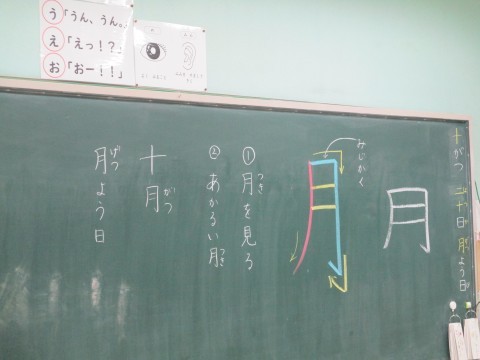 う「うん、うん。
え「えっ！？」
お「おー！！」
十がつ
月よう日
月
月
みじかく
①月を見る
つき
②あかるい月
つき
十月
がつ
月よう日
げつ